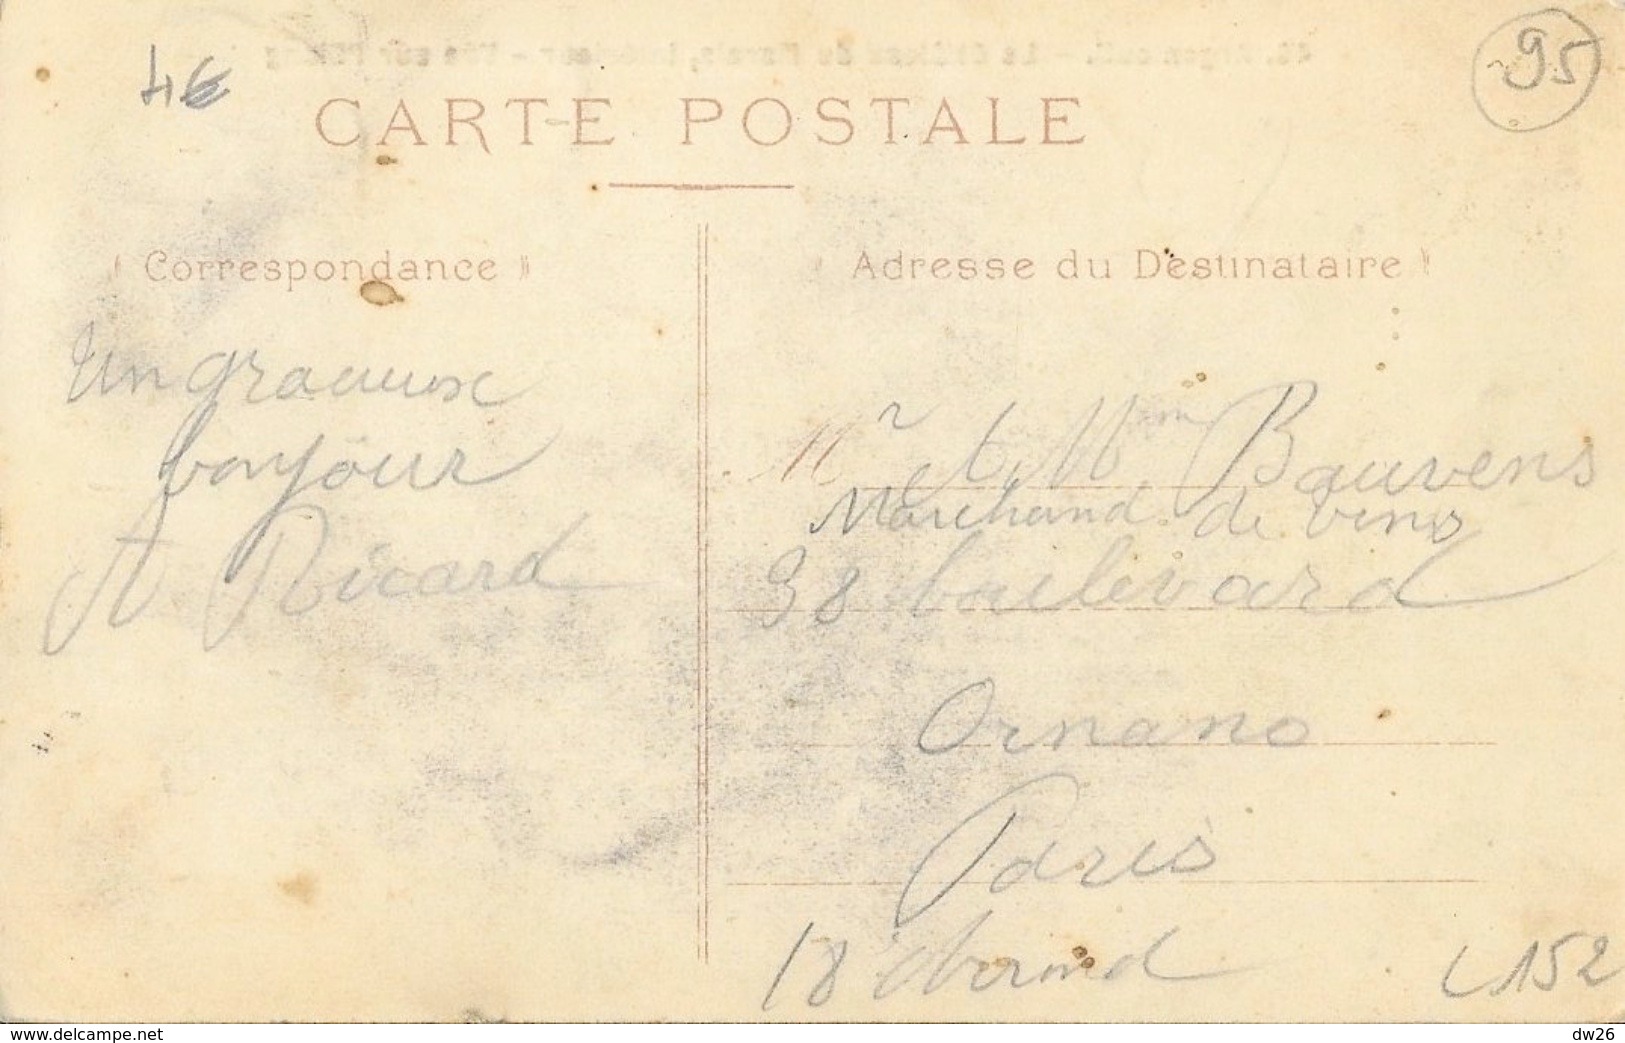 4€
95
CARTE POSTALE
Correspondance
Adresse du Destinataire
Un gracieux
bonjour
A Ricard
Mr et Mme Bauvens
Marchand de vins
98 boulevard
Ornano
Paris
18
L 152
www.delcampe.net
dw26